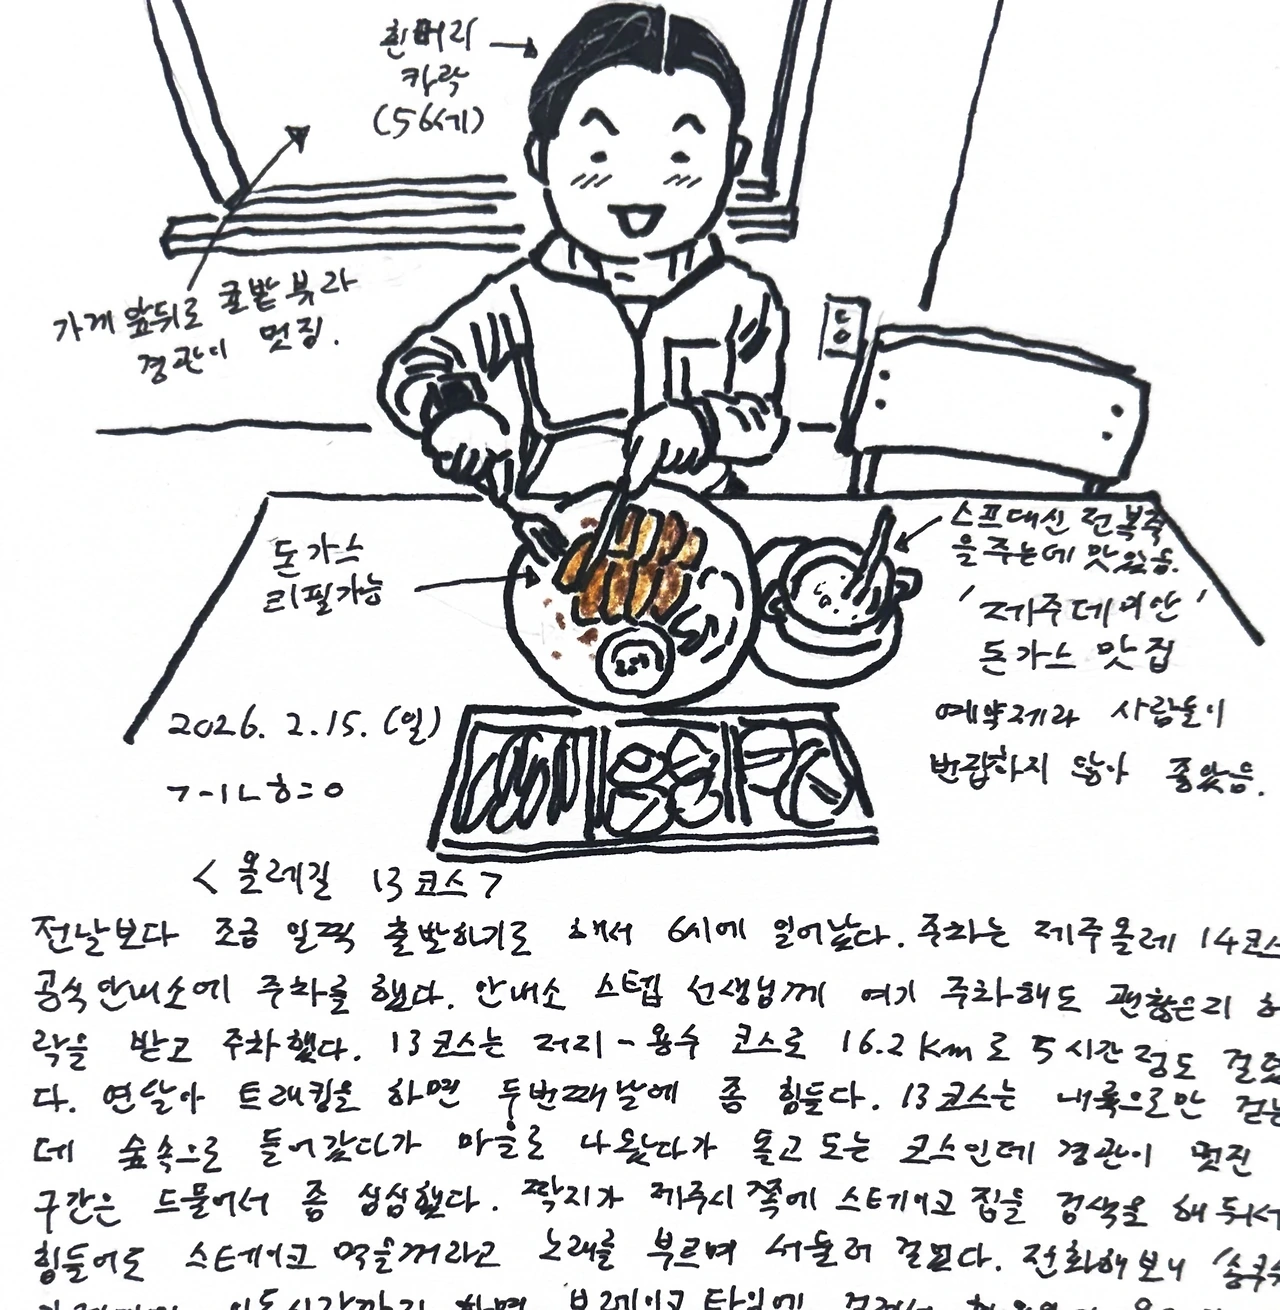 흰머리
가락
(56세)
가게 앞뒤로 귤밭 뷰라
경관이 멋짐.
돈가스
리필가능
스프대신 전복죽
을 주는데 맛있음.
'제주데이안'
돈가스 맛집
예약제라 사람들이
번잡하지 않아 좋았음.
2026. 2.15. (일)
<올레길 13코스>
전날보다 조금 일찍 출발하기로 해서 6시에 일어났다. 주차는 제주올레 14코스
공식안내소에 주차를 했다. 안내소 스텝 선생님께 여기 주차해도 괜찮은지 허
락을 받고 주차했다. 13코스는 저지-용수 코스로 16.2km로 5시간 정도 걸렸
다. 연달아 트래킹을 하면 두번째날에 좀 힘들다. 13코스는 내륙으로만 걷는
데 숲속으로 들어갔다가 마을로 나왔다가 돌고 도는 코스인데 경관이 멋진
구간은 드물어서 좀 심심했다. 짝지가 제주시쪽에 스테이크집을 검색을 해둬서
힘들어도 스테이크 먹을꺼라고 노래를 부르며 서둘러 걸었다. 전화해보니
이동시간까지 하면 브레이크 타임에